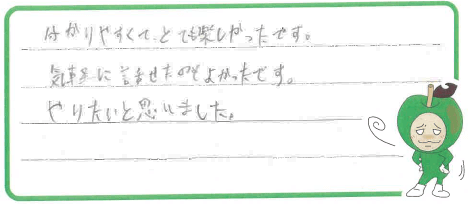 分かりやすくて、とても楽しかったです。
気軽に話せたのもよかったです。
やりたいと思いました。